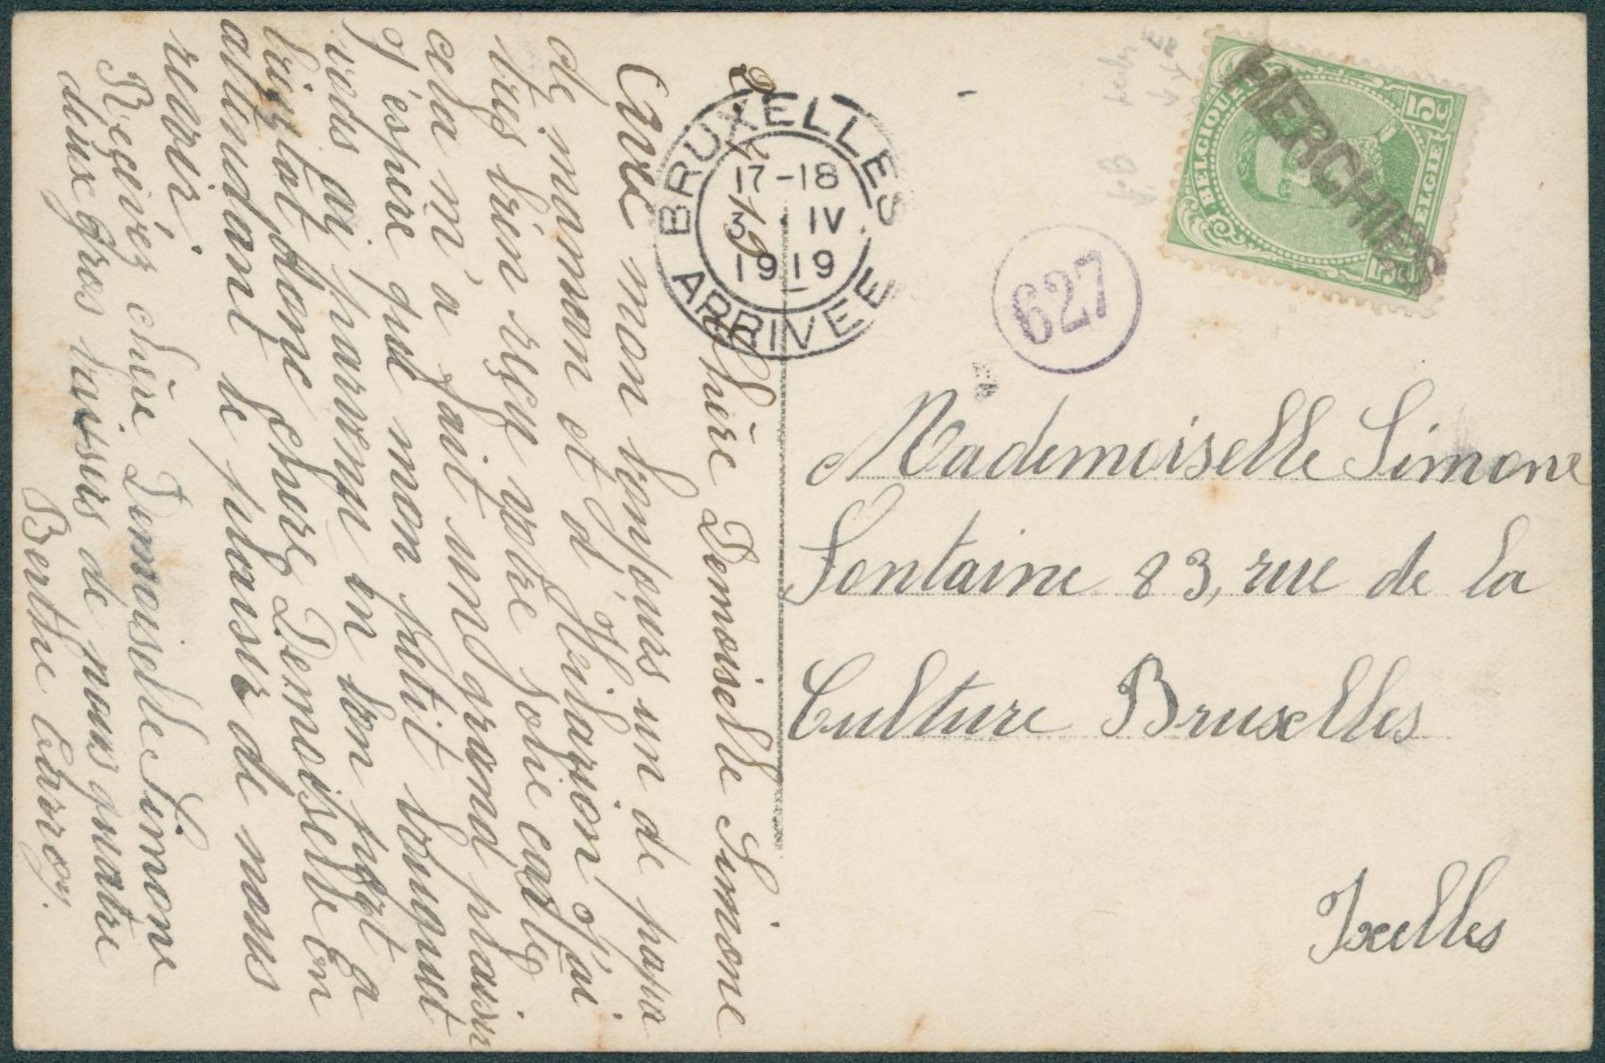 BRUXELLES
17-18
3 IV
1919
ARRIVEE
627
BELGIQUE 5c
BELGIE 5c
HERCHIES
Mademoiselle Simone
Fontaine 83, rue de la
Culture Bruxelles
Ixelles
Chère Demoiselle Simone
mon bonjours un de papa
de maman et d'Hilarion J'ai
très bien reçu votre jolie carte
cela m'a fait une grand plaisir
J'éspere que mon petit bouquet
vous a parvenu en bon
bientot donc chère Demoiselle En
attendant le plaisir de nous
revoir.
Reçevéz chère Demoiselle Simone
deux gros baisers de nous quatre
Berthe Carroy.